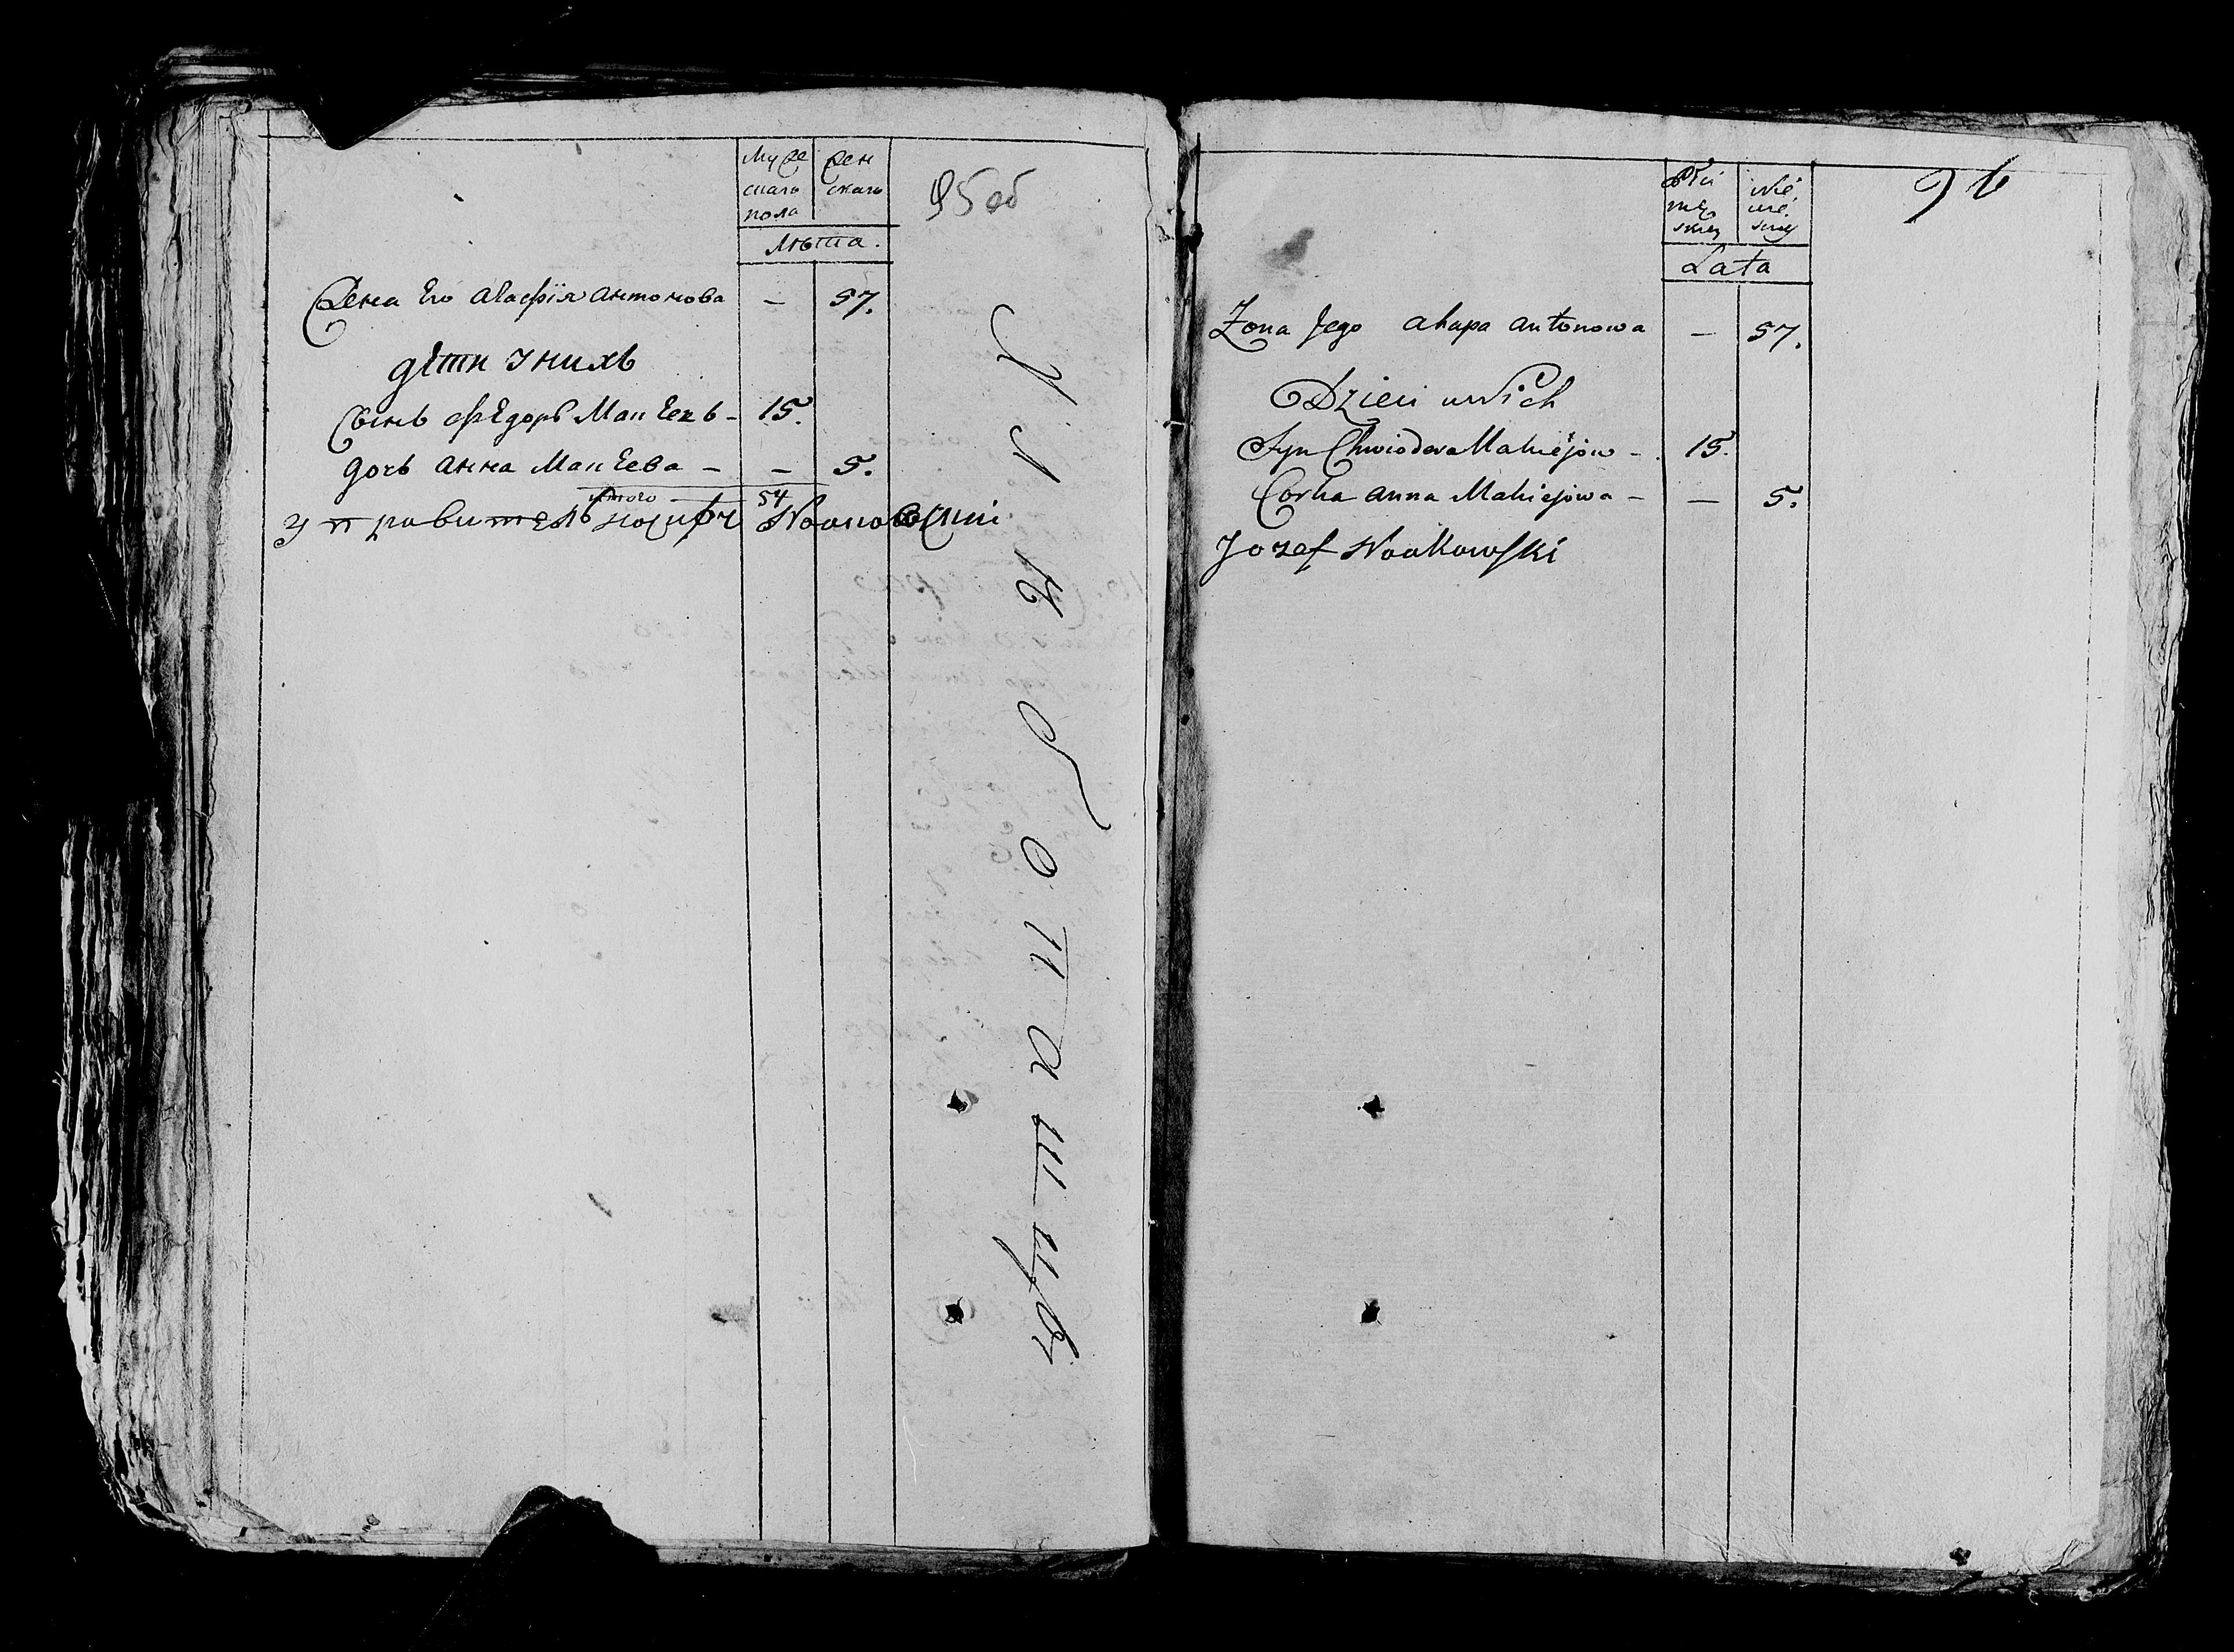 муже
скаго
пола
жен
скаго
лѣта.
95 об
Жена Его агафія антонова — 57.
дѣти Унихъ
Сынъ фЕдоръ МакЕевъ – 15.
дочь анна МакЕева – – 5.
итого — 54
Управитель Иосифъ
Płci
męz
skiey
Nie
wie.
sciey
Lata
96
Zona Jego ahapa antonowa — 57.
Dzieci uNich
Syn Chwiodor Makiejow – 15.
Corka anna Makiejowa – — 5.
Jozef Noakowski